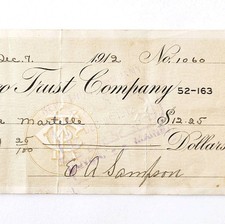 Dec. 7. 1912 No. 1060
Trust Company 52-163
Martelle $12.25
25/100 Dollars
E A Sampson